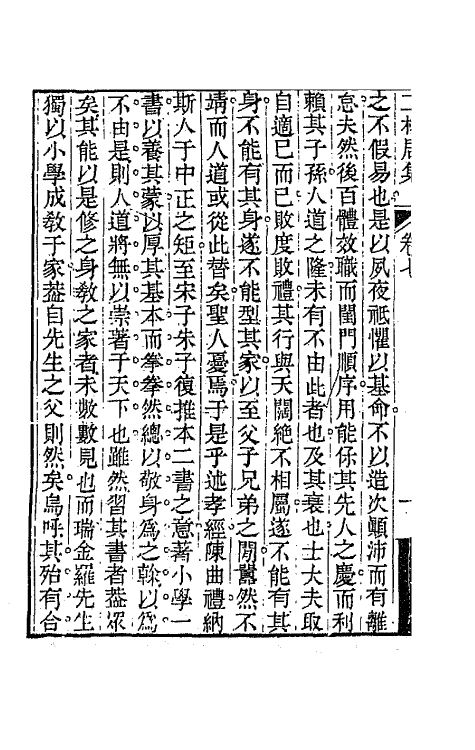 二林居集
卷七
之不假易也是以夙夜祗懼以基命不以造次顛沛而有離
怠夫然後百體效職而閨門順序用能保其先人之慶而利
賴其子孫人道之隆未有不由此者也及其衰也士大夫取
自適已而已敗度敗禮其行與天闊絶不相屬遂不能有其
身不能有其身遂不能型其家以至父子兄弟之閒嚚然不
靖而人道或從此替矣聖人憂焉于是乎述孝經陳曲禮納
斯人于中正之矩至宋子朱子復推本二書之意著小學一
書以養其蒙以厚其基本而拳拳然總以敬身爲之榦以爲
不由是則人道將無以崇著于天下也雖然習其書者葢眾
矣其能以是修之身敎之家者未數數見也而瑞金羅先生
獨以小學成敎于家葢自先生之父則然矣烏呼其殆有合